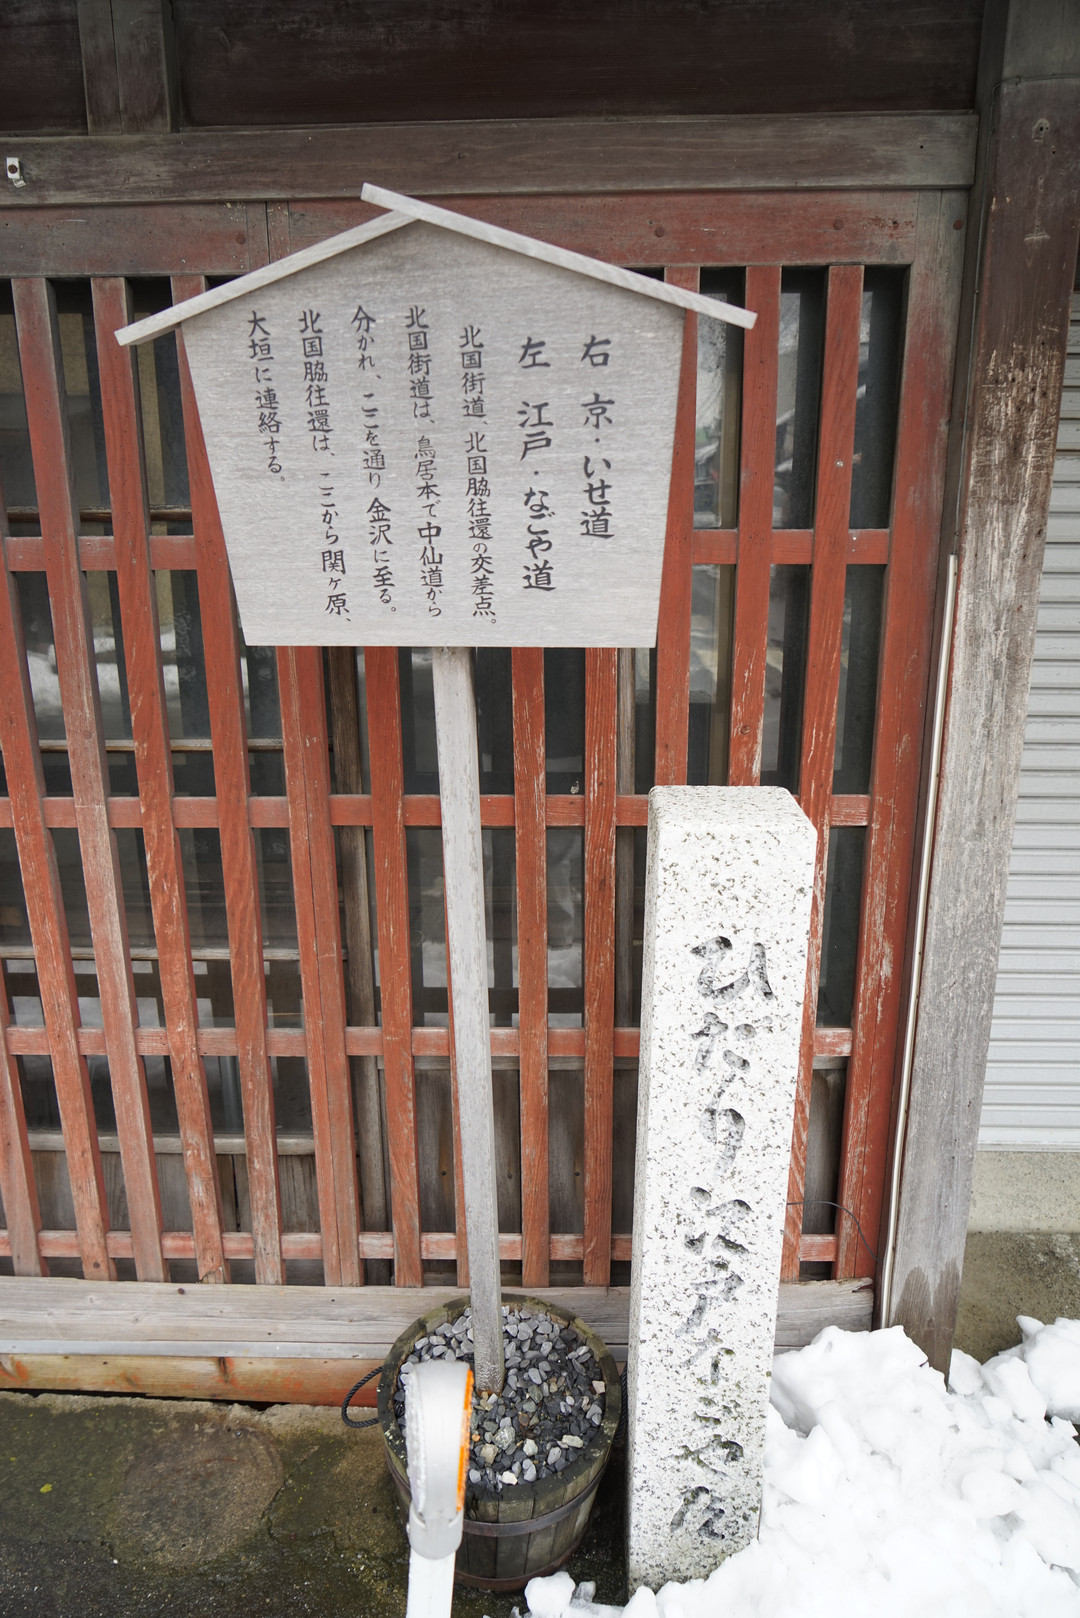 右 京・いせ道
左 江戸・なごや道
北国街道、北国脇往還の交差点。
北国街道は、鳥居本で中仙道から
分かれ、ここを通り金沢に至る。
北国脇往還は、ここから関ヶ原、
大垣に連絡する。
ひだり江戸なごや道